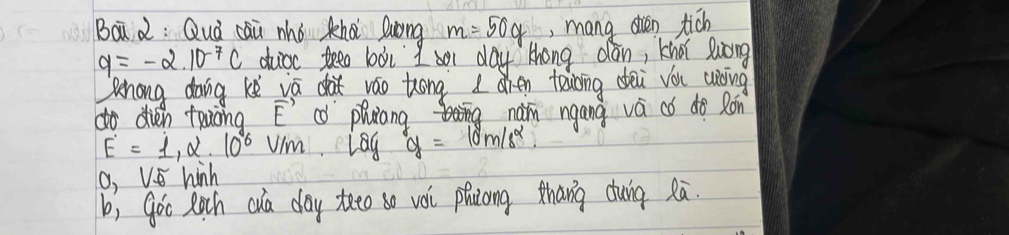 Bài 2 : Quả cầu nhỏ khối lượng m = 50g , mang điện tích
q = -2.10⁻⁷ C được treo bởi 1 sợi dây không dãn, khối lượng
không đáng kể và đặt vào trong 1 điện trường đều với cường
độ điện trường E⃗ có phương nằm ngang và có độ lớn
E = 1,2 10⁶ V/m . Lấy g = 10m/s²
a, Vẽ hình
b, góc lệch của dây treo so với phương thẳng đứng là.